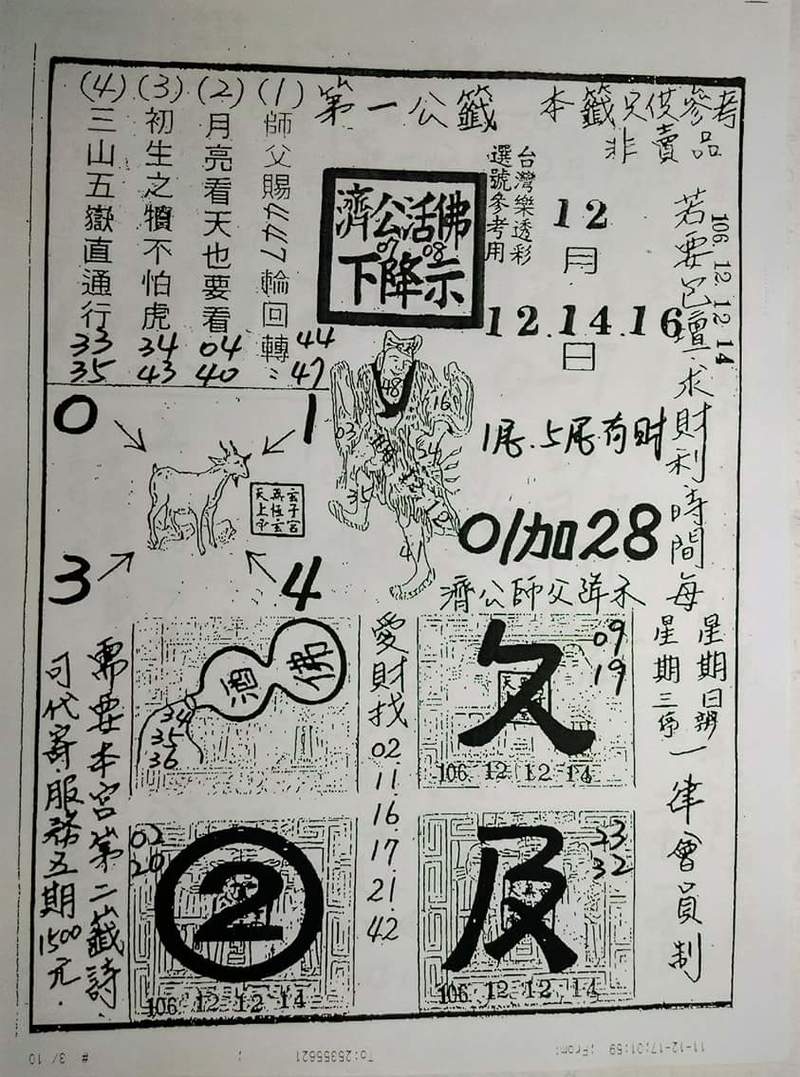 第一公籤
本籤只供參考
非賣品
(1)師父賜4447輪回轉
44
47
(2)月亮看天也要看
04
40
(3)初生之犢不怕虎
34
43
(4)三山五嶽直通行
33
35
濟公活佛
07 08
下降示
台灣樂透彩
選號參考用
12
月
12.14.16
日
106 12.12 14
若要包壇求財利時間每
星期日辦
星期三停
一律會員制
0
1
3
4
玄子宮
天上
48
16
03
54
35
1尾.5尾有財
01加28
濟公師父降示
需要本宮第二籤詩
可代寄.服務五期1500元.
酒
佛
34
35
36
愛財找
02
11
16
17
21
42
久
09
19
106 12 12 14
02
20
2
106 12 12 14
及
23
32
106 12 12 14
11-12-17;01:59 ;From:
To:25355621
# 3/ 10